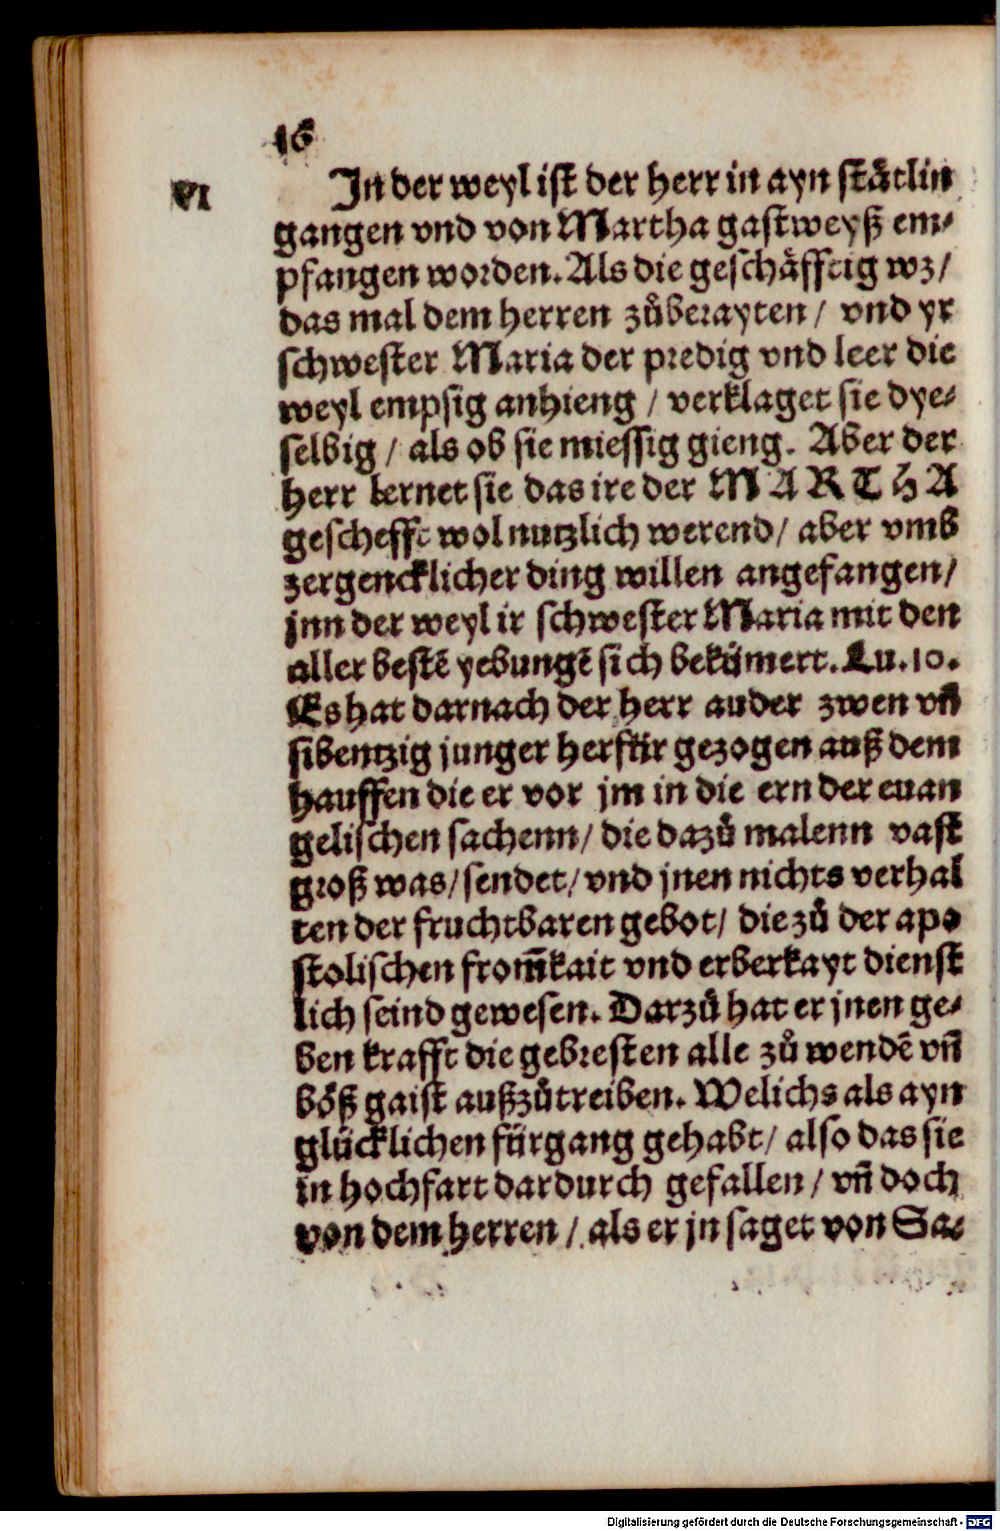 16
VI
In der weyl ist der herr in ayn stätlin
gangen vnd von Martha gastweyß em⸗
pfangen worden. Als die geschäfftig wz/
das mal dem herren zůberayten/ vnd yr
schwester Maria der predig vnd leer die
weyl empsig anhieng / verklaget sie dye⸗
selbig / als ob sie miessig gieng. Aber der
herr lernet sie das ire der MARTHA
geschefft wol nutzlich werend/ aber vmb
zergencklicher ding willen angefangen/
jnn der weyl ir schwester Maria mit den
aller bestē yebungē sich bekümert. Lu. 10.
Es hat darnach der herr ander zwen vñ
sibentzig junger herfür gezogen auß dem
hauffen die er vor jm in die ern der euan
gelischen sachenn/ die dazů malenn vast
groß was/ sendet/ vnd jnen nichts verhal
ten der fruchtbaren gebot/ die zů der apo
stolischen from̄kait vnd erberkayt dienst
lich seind gewesen. Darzů hat er jnen ge⸗
ben krafft die gebresten alle zů wendē vñ
böß gaist außzůtreiben. Welichs als ayn
glücklichen fürgang gehabt/ also das sie
in hochfart dardurch gefallen / vñ doch
von dem herren / als er jn saget von Sa⸗
Digitalisierung gefördert durch die Deutsche Forschungsgemeinschaft - DFG